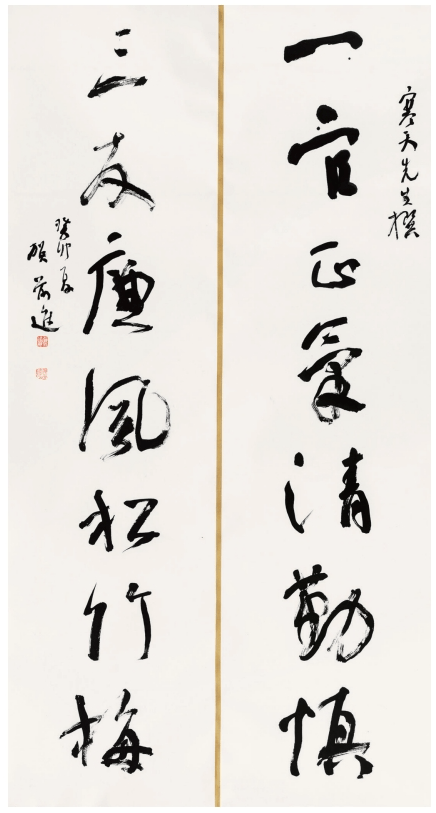 寒天先生撰
一官正氣清勤慎
三友廉風松竹梅
癸卯夏